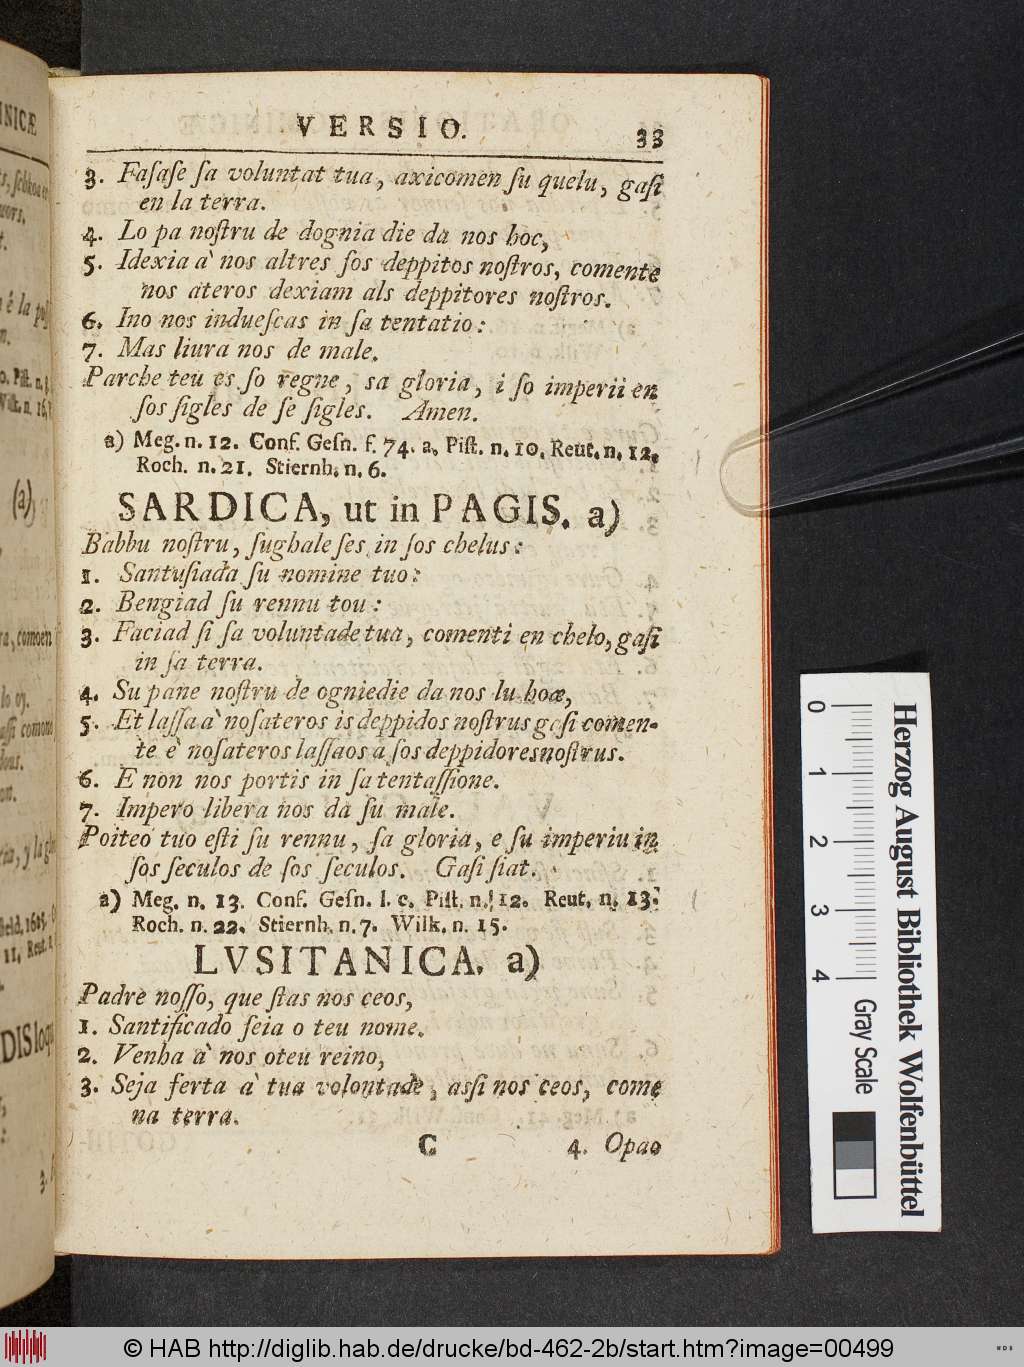 VERSIO. 33
3. Faſaſe ſa voluntat tua, axicomen ſu quelu, gaſi
en la terra.
4. Lo pa noſtru de dognia die da nos hoc,
5. Idexia à nos altres ſos deppitos noſtros, comente
nos ateros dexiam als deppitores noſtros.
6. Ino nos indueſcas in ſa tentatio:
7. Mas liura nos de male.
Parche teu es ſo regne, sa gloria, i ſo imperii en
ſos ſigles de ſe ſigles. Amen.
a) Meg. n. 12. Conf. Geſn. f. 74. a. Piſt. n. 10. Reut. n. 12.
Roch. n. 21. Stiernh. n. 6.
SARDICA, ut in PAGIS. a)
Babbu noſtru, ſughale ſes in ſos chelus:
1. Santuſiada ſu nomine tuo:
2. Bengiad ſu rennu tou:
3. Faciad ſi ſa voluntade tua, comenti en chelo, gaſi
in ſa terra.
4. Su pane noſtru de ogniedie da nos lu hoæ,
5. Et laſſa à noſateros is deppidos noſtrus gaſi comen-
te è noſateros laſſaos a ſos deppidoresnoſtrus.
6. E non nos portis in ſa tentaſſione.
7. Impero libera nos da ſu male.
Poiteo tuo eſti ſu rennu, ſa gloria, e ſu imperiu in
ſos ſeculos de ſos ſeculos. Gaſi ſiat.
a) Meg. n. 13. Conf. Geſn. l. c. Piſt. n. 12. Reut. n. 13.
Roch. n. 22. Stiernh. n. 7. Wilk. n. 15.
LVSITANICA. a)
Padre noſſo, que ſtas nos ceos,
1. Santificado ſeia o teu nome.
2. Venha à nos oteu reino,
3. Seja ferta à tua volontade, aſſi nos ceos, come
na terra.
C 4. Opao
0 1 2 3 4
Gray Scale
Herzog August Bibliothek Wolfenbüttel
© HAB http://diglib.hab.de/drucke/bd-462-2b/start.htm?image=00499